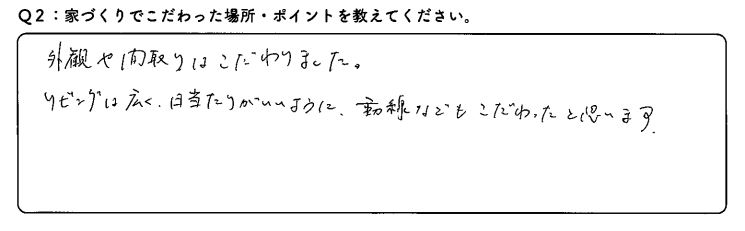 Q2：家づくりでこだわった場所・ポイントを教えてください。
外観や間取りはこだわりました。
リビングは広く、日当たりがいいように、動線などもこだわったと思います。